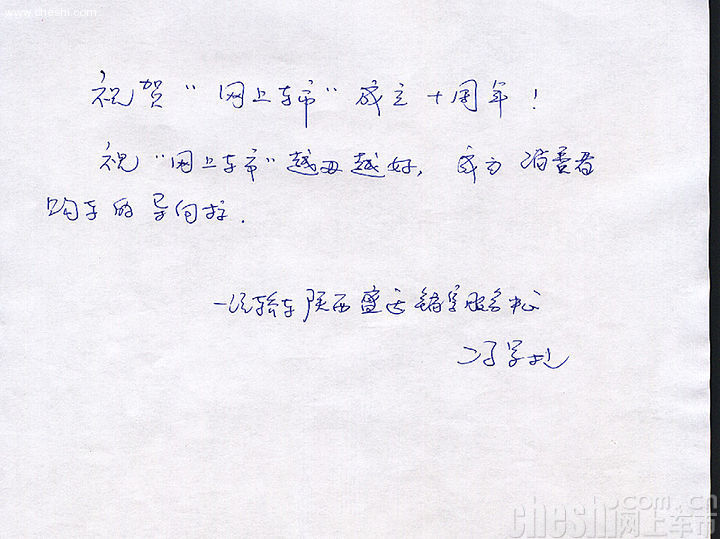 www.cheshi.com
祝贺“网上车市”成立十周年!
祝“网上车市”越办越好, 成为消费者
购车的导向标.
一汽轿车陕西盛运销售服务中心
冯军
cheshi.com.cn
网上车市